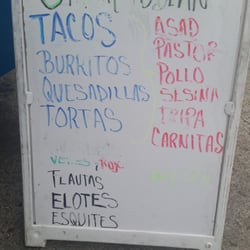 TACOS
BURRITOS
QUESADILLAS
TORTAS
ASAD
PASTOR
POLLO
SESINA
TRIPA
CARNITAS
FLAUTAS
ELOTES
ESQUITES